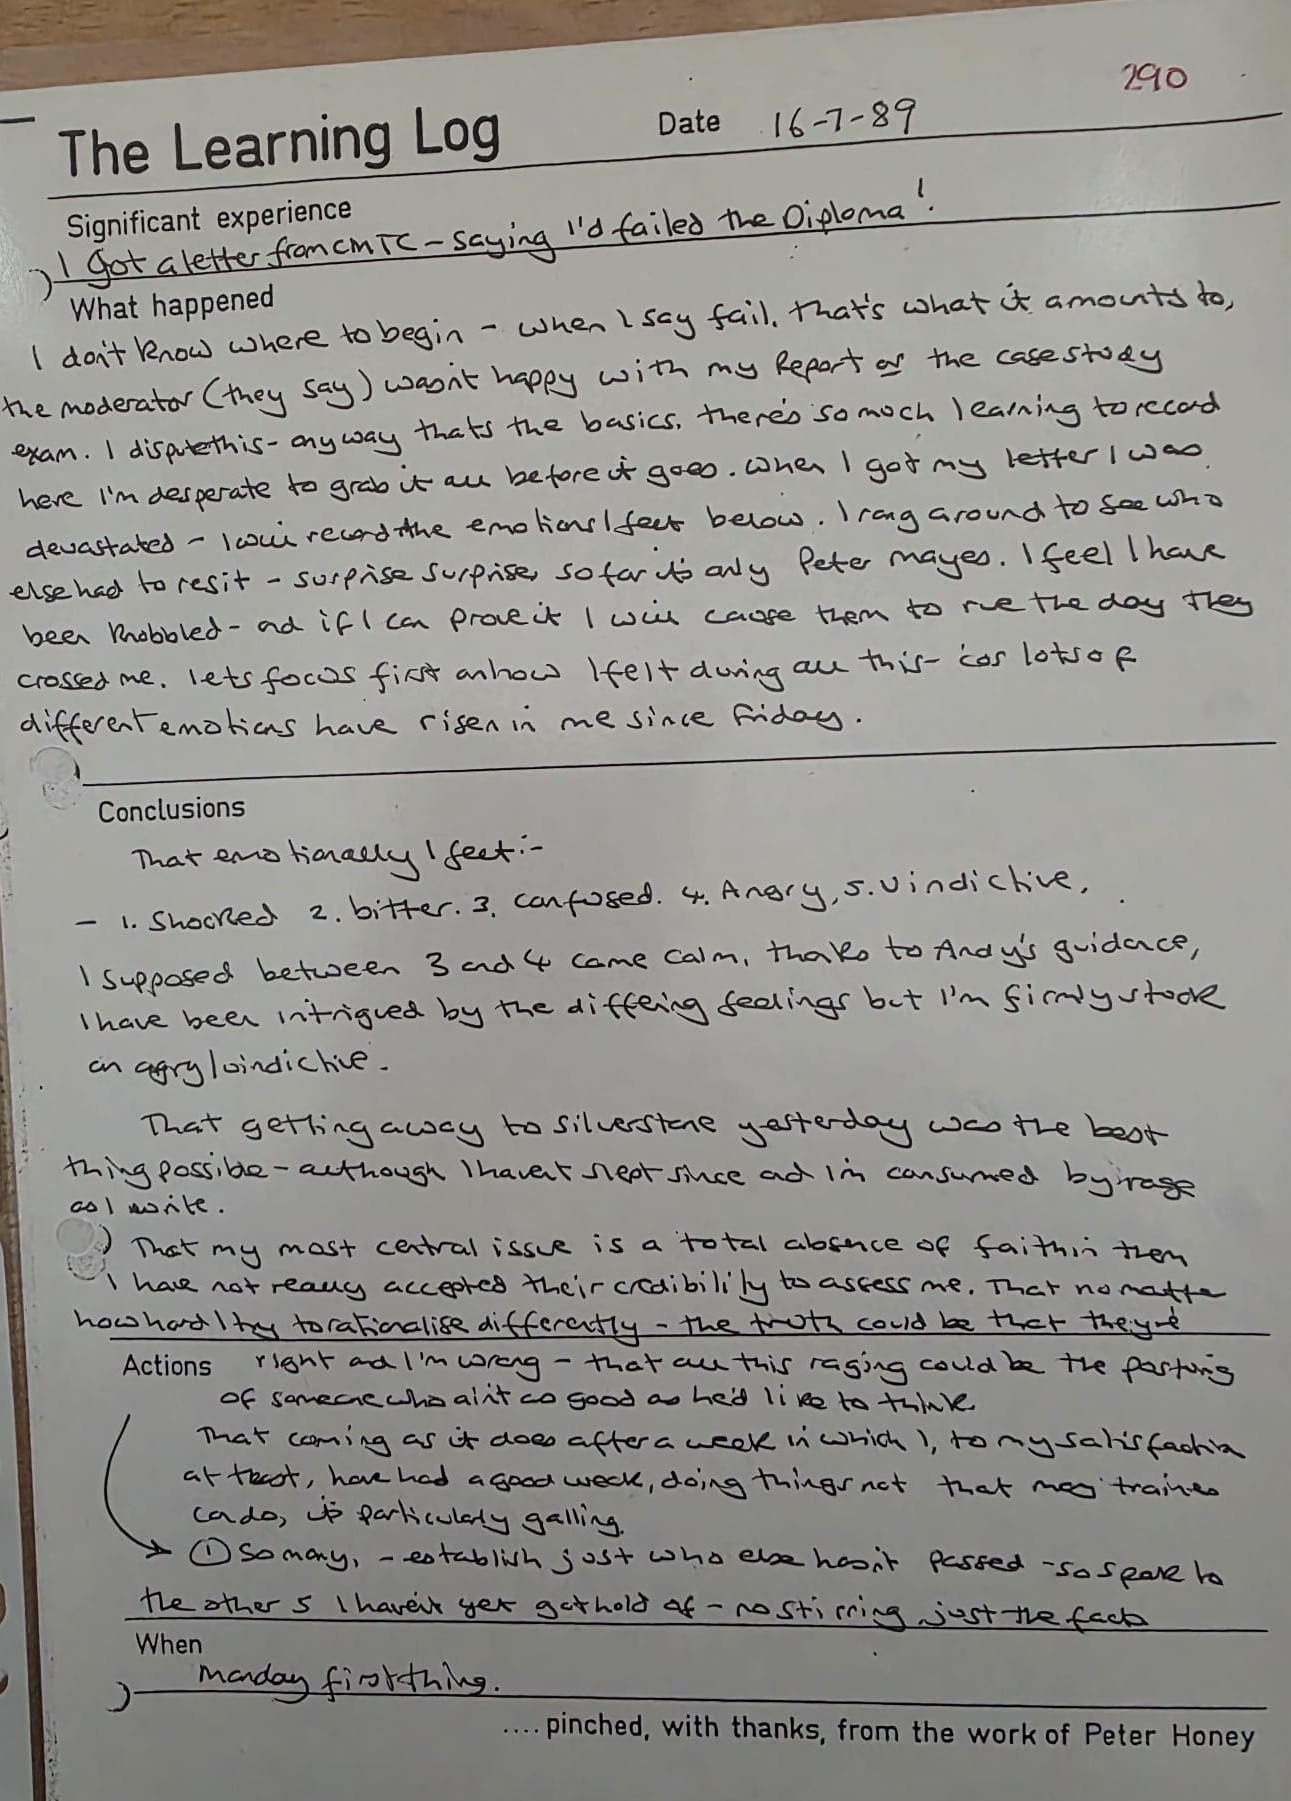 290
The Learning Log Date 16-7-89
Significant experience
I got a letter from CMTC - saying I'd failed the Diploma!
What happened
I don't know where to begin - when I say fail, that's what it amounts to,
the moderator (they say) wasn't happy with my Report or the case study
exam. I dispute this - anyway thats the basics, there's so much learning to record
here I'm desperate to grab it all before it goes. When I got my letter I was
devastated - I will record the emotions I feel below. I rang around to see who
else had to resit - surprise surprise, so far it's only Peter Mayes. I feel I have
been knobbled - and if I can prove it I will cause them to rue the day they
crossed me. lets focus first on how I felt during all this - 'cos lots of
different emotions have risen in me since Friday.
Conclusions
That emotionally I feel :-
- 1. Shocked 2. bitter. 3. confused. 4. Angry, 5. Vindictive,
I supposed between 3 and 4 came calm, thanks to Andy's guidance,
I have been intrigued by the differing feelings but I'm firmly stuck
on agry/vindictive.
That getting away to silverstone yesterday was the best
thing possible - although I havent slept since and I'm consumed by rage
as I write.
That my most central issue is a total absence of faith in them
I have not really accepted their credibility to assess me. That no matter
how hard I try to rationalise differently - the truth could be that they're
Actions right and I'm wrong - that all this raging could be the posturing
of someone who ain't as good as he'd like to think
That coming as it does after a week in which I, to my satisfaction
at least, have had a good week, doing things not that many trainers
can do, it's particularly galling.
① So many, - establish just who else hasn't passed - so speak to
the other 5 I haven't yet got hold of - no stirring just the facts
When
Monday first thing.
.... pinched, with thanks, from the work of Peter Honey